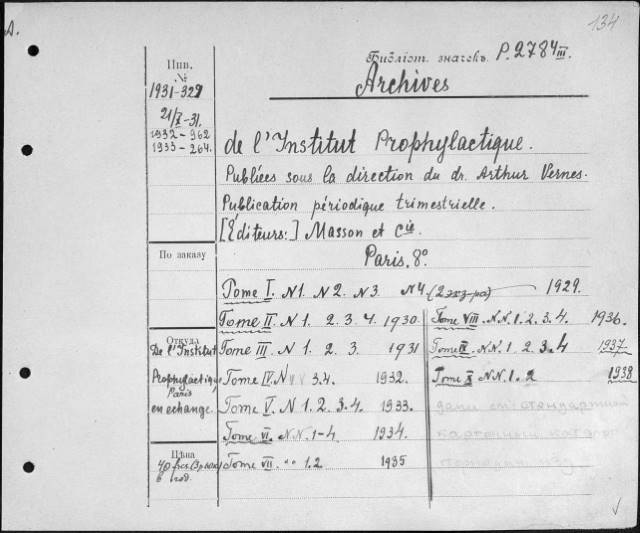 А.
134
Инв.
№
1931-329
21/X-31.
1932-962
1933-264.
Библіот. значекъ P.2784 III.
Archives
de l'Institut Prophylactique.
Publiées sous la direction du dr. Arthur Vernes.
Publication périodique trimestrielle.
[Éditeurs:] Masson et Cie
Paris. 8°.
По заказу
Tome I. N1. N2. N3. N4 (2 экз-ра) 1929.
Tome II. N 1. 2. 3. 4. 1930.
Tome III. N 1. 2. 3 1931
Tome IV. N 3.4. 1932.
Tome V. N 1. 2. 3. 4. 1933.
Tome VI. N.N. 1-4. 1934.
Tome VII. " 1.2. 1935
Tome VIII. N.N. 1. 2. 3. 4. 1936.
Tome IX. N.N. 1. 2. 3. 4 1937
Tome X N.N. 1. 2 1938
далее стандартный
карточный каталог
Откуда
De l'Institut
Prophylactique
Paris
en echange.
Цѣна
40 frcs.
в год.